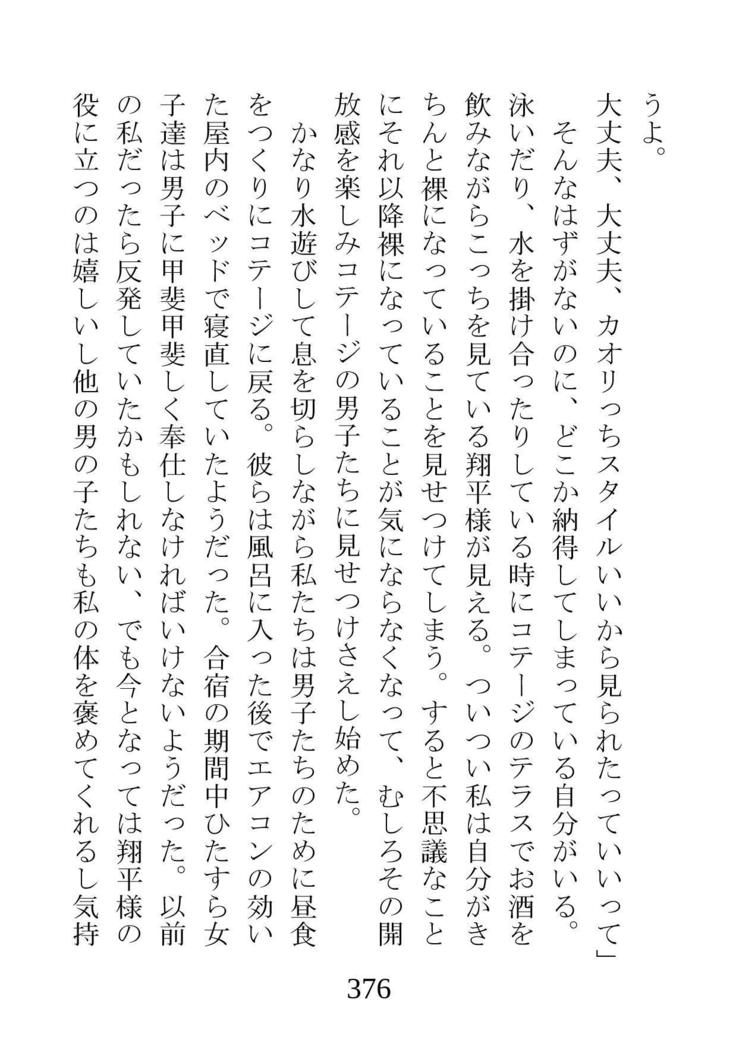 うよ。
大丈夫、大丈夫、カオリっちスタイルいいから見られたっていいって」
そんなはずがないのに、どこか納得してしまっている自分がいる。
泳いだり、水を掛け合ったりしている時にコテージのテラスでお酒を
飲みながらこっちを見ている翔平様が見える。ついつい私は自分がき
ちんと裸になっていることを見せつけてしまう。すると不思議なこと
にそれ以降裸になっていることが気にならなくなって、むしろその開
放感を楽しみコテージの男子たちに見せつけさえし始めた。
かなり水遊びして息を切らしながら私たちは男子たちのために昼食
をつくりにコテージに戻る。彼らは風呂に入った後でエアコンの効い
た屋内のベッドで寝直していたようだった。合宿の期間中ひたすら女
子達は男子に甲斐甲斐しく奉仕しなければいけないようだった。以前
の私だったら反発していたかもしれない、でも今となっては翔平様の
役に立つのは嬉しいし他の男の子たちも私の体を褒めてくれるし気持
376